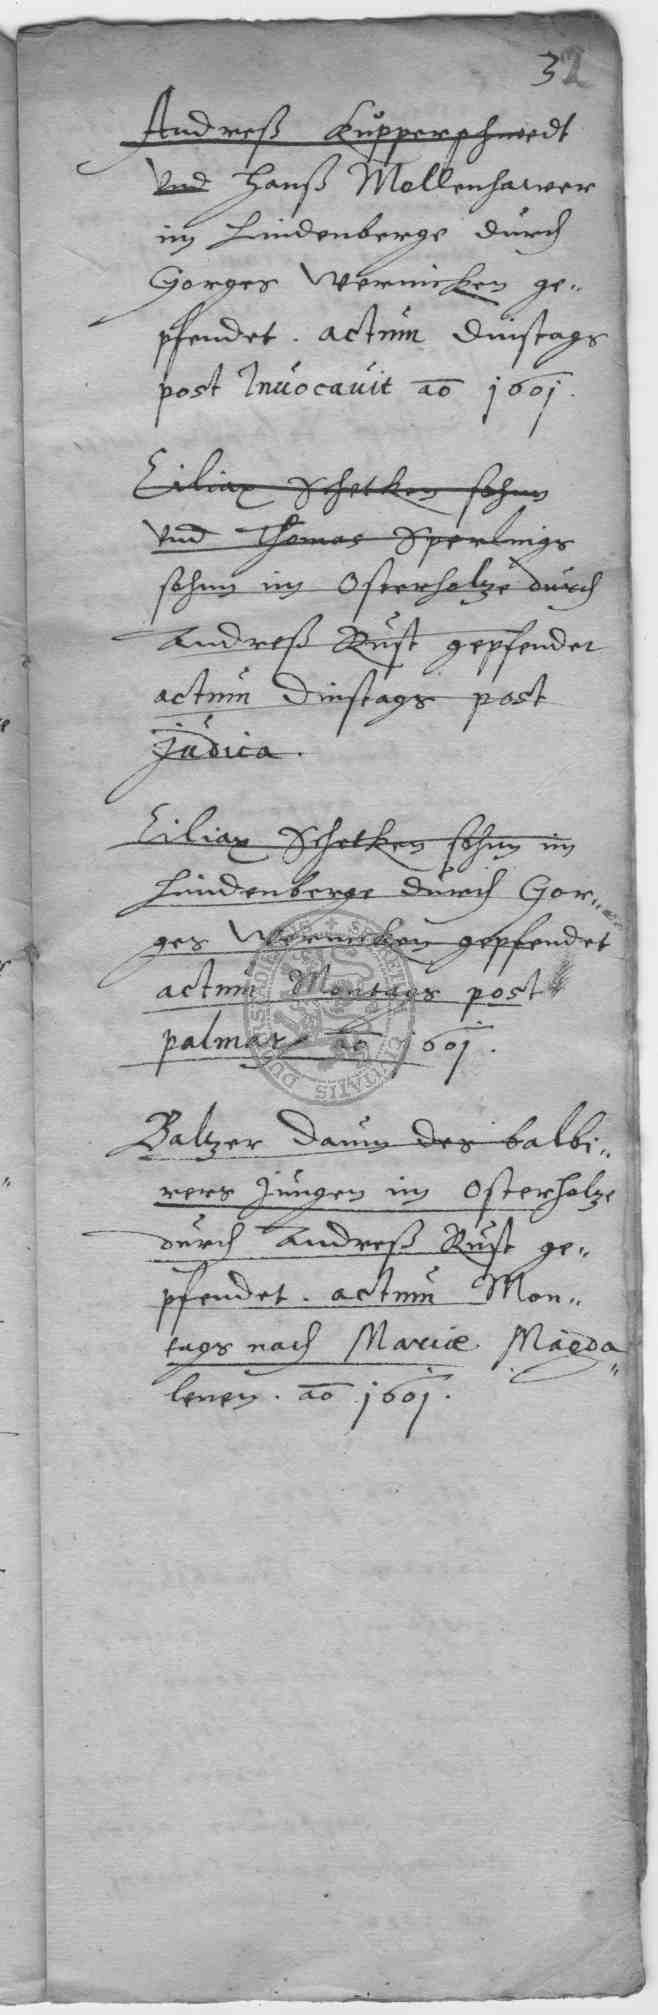 32
Andreß Kupperschmedt
vnd Hanß Mollenhawer
im Lindenberge durch
Gorges Wernicken ge„
pfendet. actum Dinstags
post Invocavit ao 1601.
Ciliax Schetken sohnn
vnd Thomas Sperlings
sohnn im Osterholtze durch
Andreß Rust gepfendet
actum Dinstags post
judica.
Ciliax Schetken sohnn im
Lindenberge durch Gor„
ges Wernicken gepfendet
actum Montags post
palmar. ao 1601.
Baltzer Daum des balbi„
rers Jungen im Osterholtze
durch Andreß Rust ge„
pfendet. actum Mon„
tags nach Mariæ Magda„
lenen. ao 1601.